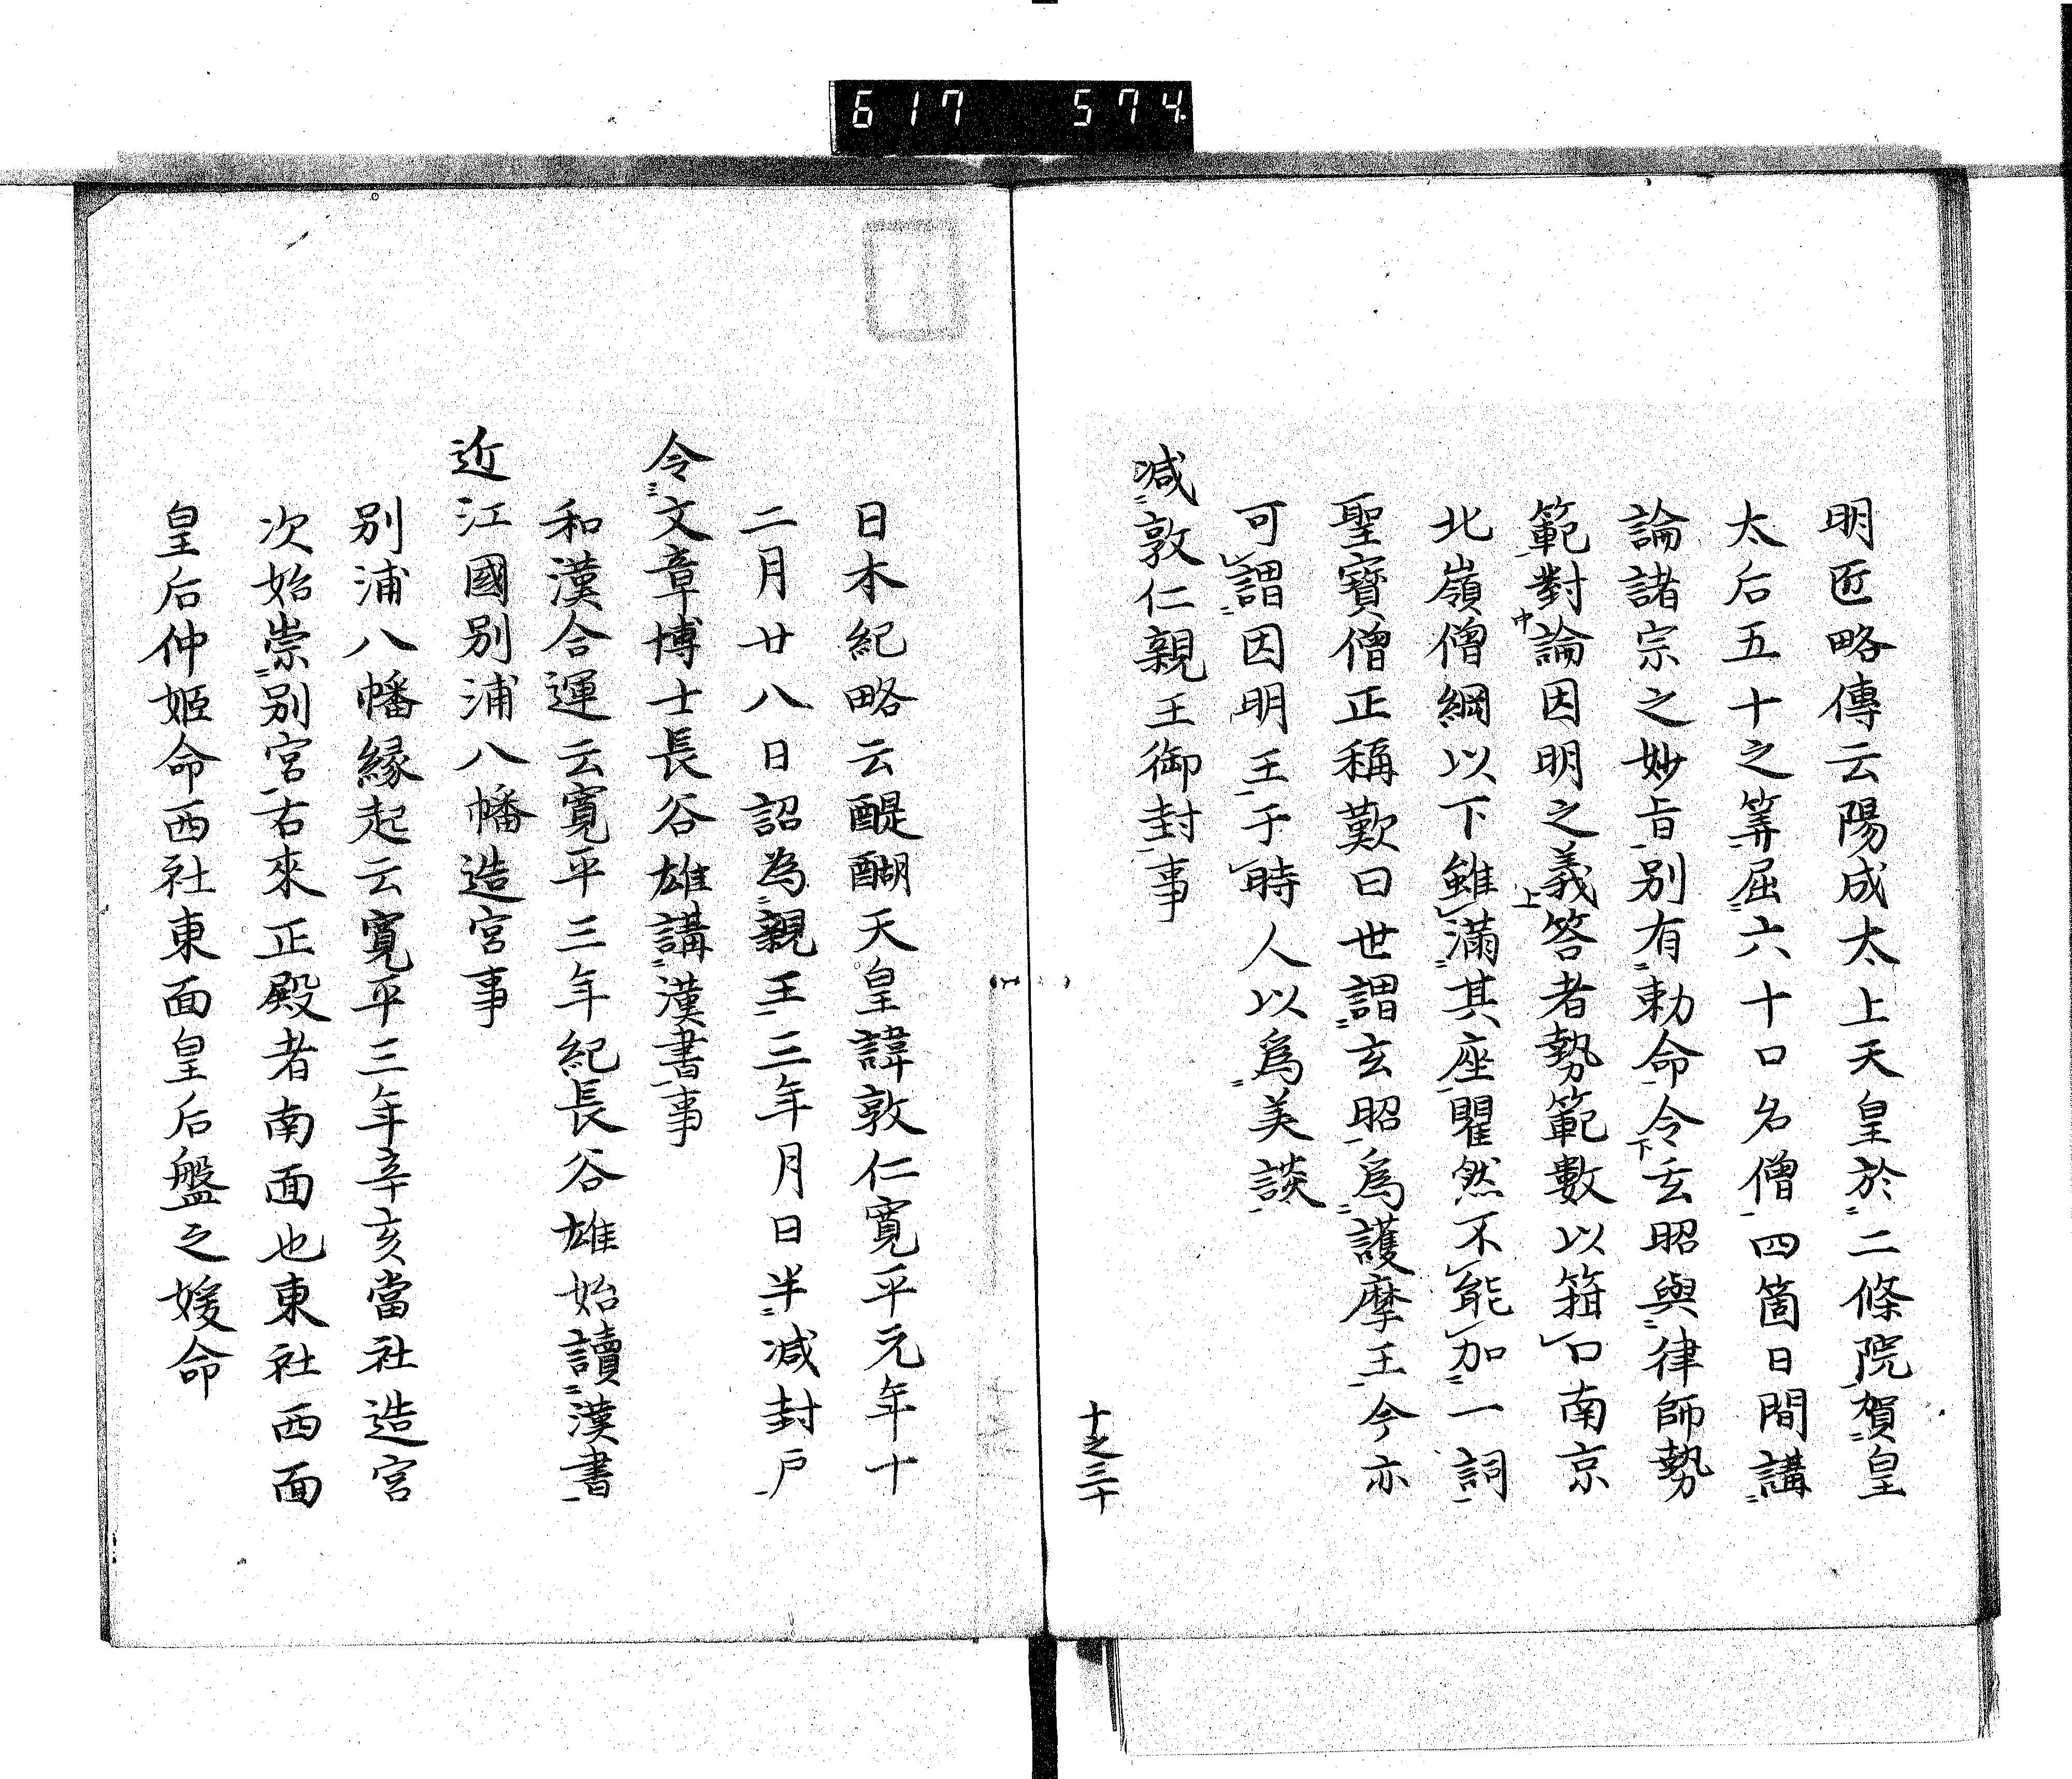 617 574
明匠略傳云陽成太上天皇於二條院賀皇
太后五十之筭屈六十口名僧四箇日間講
論諸宗之妙旨別有勅命令玄昭與律師勢
範對論因明之義答者勢範數以箝口南京
北嶺僧綱以下雖滿其座瞿然不能加一詞
聖寶僧正稱歎曰世謂玄昭爲護摩王今亦
可謂因明王于時人以爲美談
减敦仁親王御封事
十之三十
日本紀略云醍醐天皇諱敦仁寛平元年十
二月廿八日詔為親王三年月日半减封戸
令文章博士長谷雄講漢書事
和漢合運云寛平三年紀長谷雄始讀漢書
近江國別浦八幡造宮事
別浦八幡縁起云寛平三年辛亥當社造宮
次始崇別宮右來正殿者南面也東社西面
皇后仲姬命西社東面皇后盤之媛命